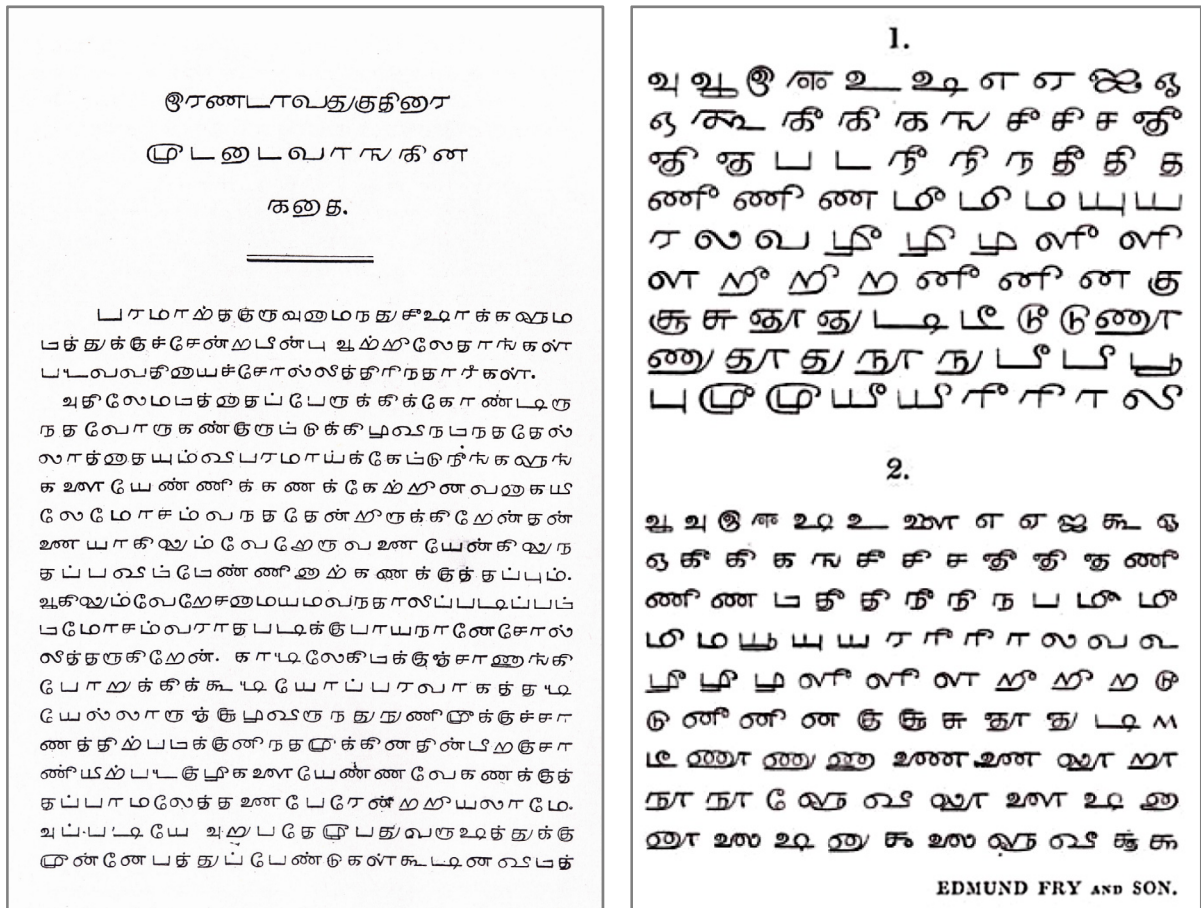 இரணடாவதுகுதிரை
முடடைவாஙகின
கதை.
பரமாற்தகுருவுமைநதுசீஷாக்களும
டத்துக்குச்சேன்றபீன்பு ஆற்றிலேதாங்கள்
படவவதியைச்சோல்லீத்திரிந்தார்கள்.
அதிலேமடத்தைப்பேருக்கிக்கோண்டிரு
நதவோருகண்குருட்டுக்கிழவிநடநததேல்
லாத்தையும்விபரமாய்க்கேட்டுநீங்களுங்
களையேண்ணிக்கணக்கேற்றினவகையி
லேமோசம்வநததேன்றிருக்கிறேன்தன்
னையாகிலும்வேறேருவனையேன்கிலுந
தப்பவிட்டேண்ணினாற்கணக்குத்தப்பும்.
ஆகிலும்வேறேசமையமவநதாலிப்படிப்பட்
டமோசம்வராதபடிக்குபாயநானேசோல்
லீத்தருகிறேன். காடிலேகிடக்குஞ்சாணங்கி
போறுக்கிக்கூடியோப்பரவாகத்தடி
யேல்லாருந்குழவிருநதுநுணிமூக்குச்சா
ணத்திற்படக்குனிநதமூக்கினதின்பீறகுசா
ணியிற்படகுழிகளையேண்ணவேகணக்குத்
தப்பாமலேத்தனைபேரேன்றறியலாமே.
அப்படியே அறுபதேழுபதுவருஷத்துக்கு
முன்னேபத்துப்பேண்டுகள்கூடினவிடத்
1.
அ ஆ இ ஈ உ ஷ எ ஏ ஐ ஓ
ஒ கூ கீ கி க ங சீ சி ச ஞீ
ஞி ஞ ப ட நீ நி ந தீ தி த
ணீ ணி ண மீ மி ம யு ய
ர ல வ ழீ ழி ழ ளீ ளி
ள றீ றி ற னீ னி ன கு
சூ சு ஞூ ஞு டி டீ டூ டு ணூ
ணு தூ து நூ நு பீ பீ பூ
பு மூ மு யீ யி ரீ ரி ர லீ
2.
ஆ அ இ ஈ ஷ உ ஊ எ ஏ ஐ கூ ஓ
ஒ கீ கி க ங சீ சி ச ஞீ ஞி ஞ ணீ
ணி ண ட தீ தி நீ நி ந ப மீ மீ
மி ம யூ யு ய ர ரீ ரி ர ல வ
ழீ ழி ழ ளீ ளி ள றீ றி ற டூ
டு னீ னி ன கு கு சு தூ து டி
EDMUND FRY AND SON.